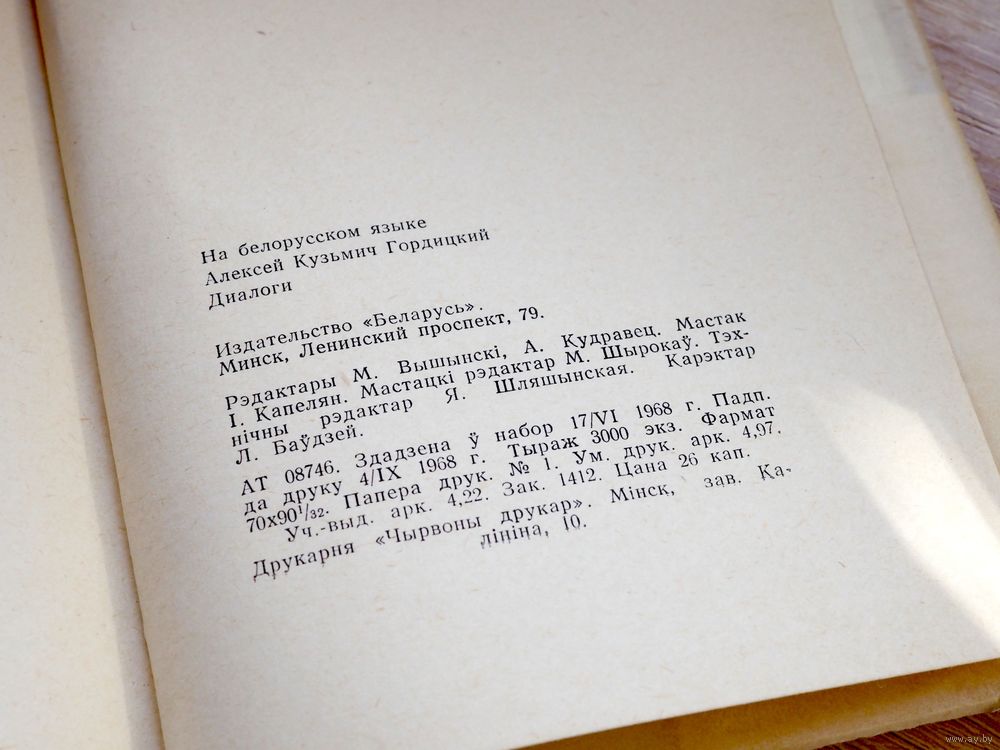 На белорусском языке
Алексей Кузьмич Гордицкий
Диалоги
Издательство «Беларусь».
Минск, Ленинский проспект, 79.
Рэдактары М. Вышынскі, А. Кудравец. Мастак
І. Капелян. Мастацкі рэдактар М. Шырокаў. Тэх-
нічны рэдактар Я. Шляшынская. Карэктар
Л. Баўдзей.
АТ 08746. Здадзена ў набор 17/VI 1968 г. Падп.
да друку 4/IX 1968 г. Тыраж 3000 экз. Фармат
70х90¹/₃₂. Папера друк. № 1. Ум. друк. арк. 4,97.
Уч.-выд. арк. 4,22. Зак. 1412. Цана 26 кап.
Друкарня «Чырвоны друкар». Мінск, зав. Ка-
лініна, 10.
www.ay.by